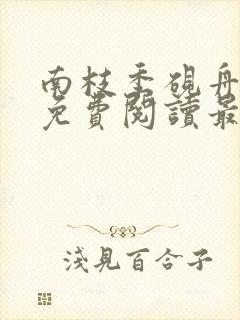 南枝季硯舟
免費閱讀最
淺見百合子